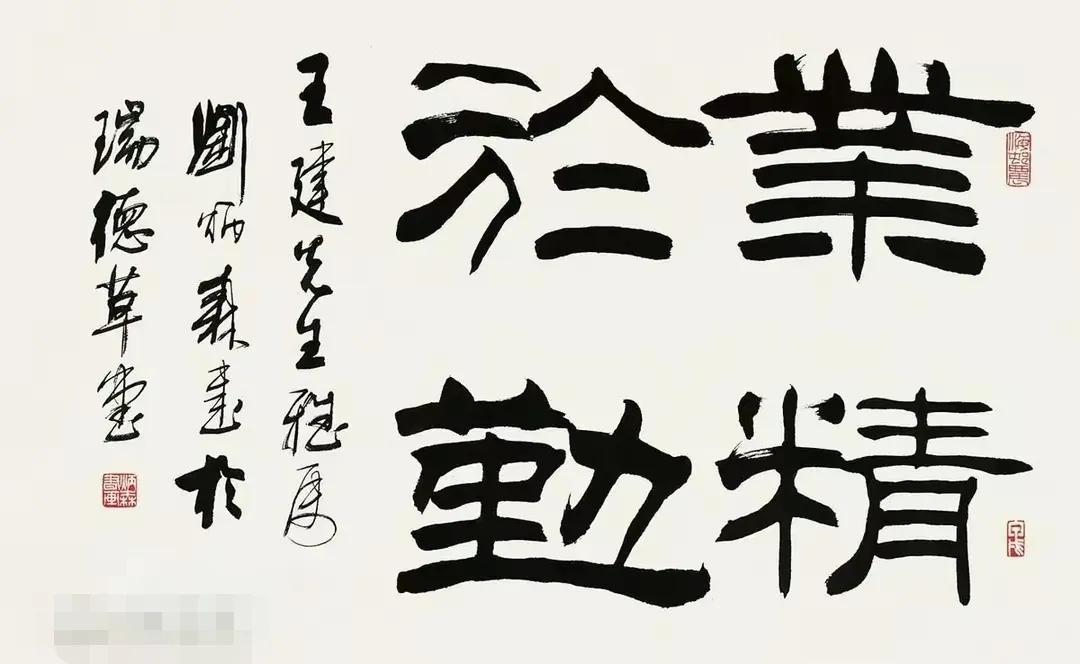 業精
於勤
王建先生雅属
劉炳森書於
瑞德草堂